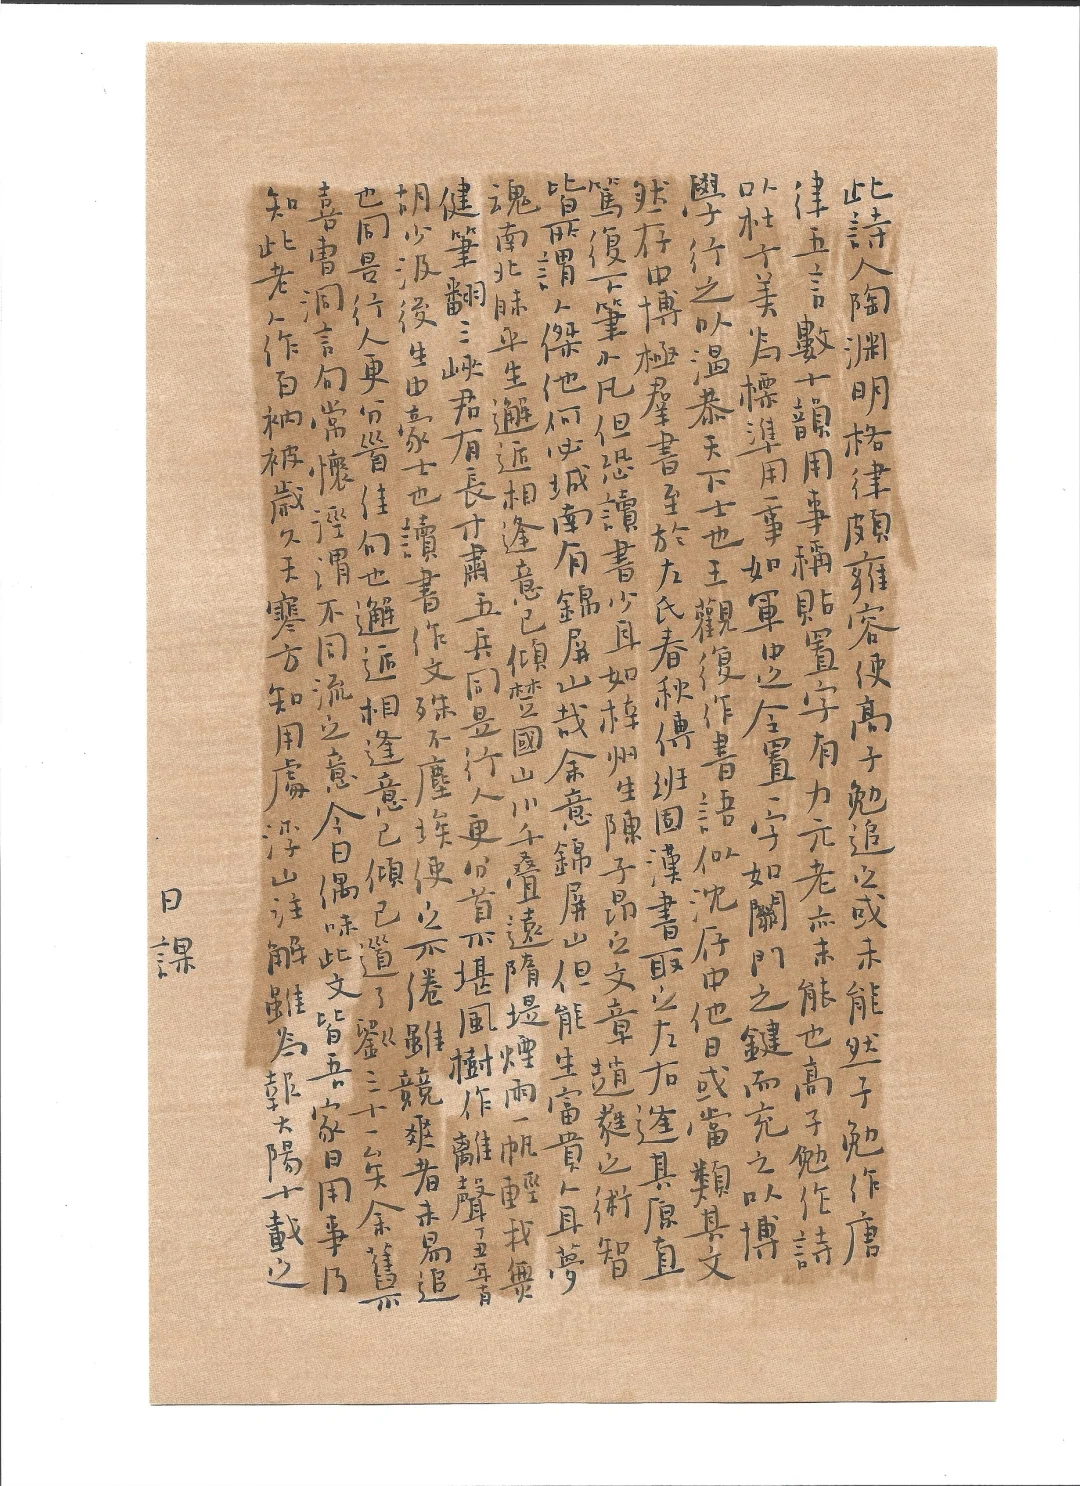 此詩人陶淵明格律頗雍容使高子勉追之或未能然子勉作唐
律五言數十韻用事稱貼置字有力元老亦未能也高子勉作詩
以杜子美為標準用一事如軍中之令置一字如關門之鍵而充之以博
學行之以溫恭天下士也王觀復作書語似沈存中他日或當類其文
然存中博極羣書至於左氏春秋傳班固漢書取之左右逢其原真
篤復下筆不凡但恐讀書少耳如梓州生陳子昂之文章趙蕤之術智
皆所謂人傑他何必城南有錦屏山哉余意錦屏山但能生富貴人耳夢
魂南北昧平生邂逅相逢意已傾楚國山川千疊遠隋堤煙雨一帆輕我無
健筆翻三峽君有長才肅五兵同是行人更分首不堪風樹作離聲丁丑年
胡少汲後生中豪士也讀書作文殊不塵埃使之不倦雖競爽者未易追
也同是行人更分首佳句也邂逅相逢意已傾已道了劉三十一矣余舊不
喜曹洞言句常懷涇渭不同流之意今日偶味此文皆吾家日用事乃
知此老人作百衲被歲久天寒方知用處浮山注解雖為報大陽十載之
日課